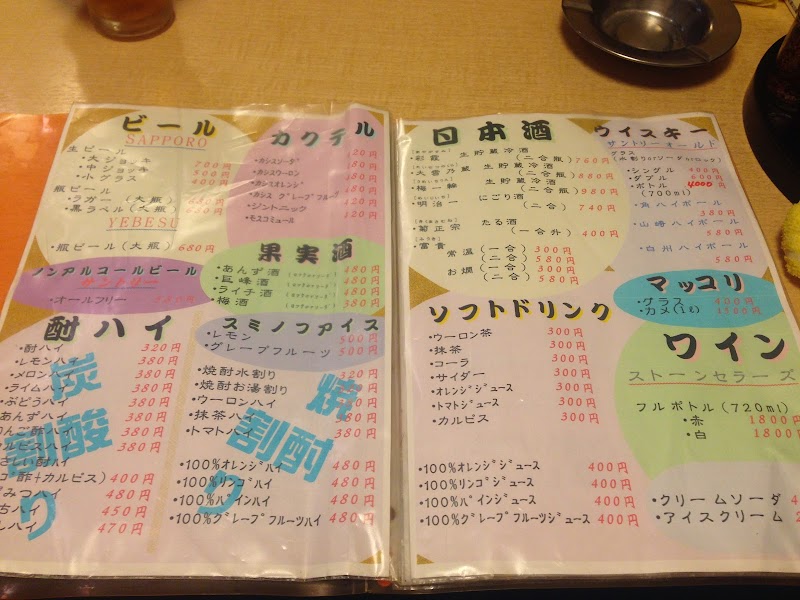 ビール
SAPPORO
生ビール
・大ジョッキ 700円
・中ジョッキ 500円
・小グラス 400円
瓶ビール
・ラガー(大瓶)
・黒ラベル(大瓶)
YEBESU
・瓶ビール(大瓶) 680円
ノンアルコールビール
サントリー
・オールフリー
カクテル
・カシスソーダ
・カシスウーロン
・カシスオレンジ
・カシス グレープフルーツ
・ジントニック
・モスコミュール
果実酒
・あんず酒 480円
・巨峰酒 480円
・ライチ酒 480円
・梅酒 480円
酎ハイ
・酎ハイ 320円
・レモンハイ 380円
・メロンハイ 380円
・ライムハイ 380円
・ぶどうハイ 380円
あんずハイ 380円
380円
380円
400円
480円
450円
470円
炭酸割り
スミノフアイス
・レモン 500円
・グレープフルーツ 500円
・焼酎水割り 320円
・焼酎お湯割り
・ウーロンハイ
・抹茶ハイ
・トマトハイ
・100%オレンジハイ 480円
・100%リンゴハイ 480円
・100%パインハイ 480円
・100%グレープフルーツハイ 480円
焼酎割り
日本酒
・彩霞 生貯蔵冷酒
(二合瓶) 760円
・大雪乃蔵 生貯蔵冷酒
(二合瓶) 880円
・梅一輪 生貯蔵冷酒
(二合瓶) 980円
・明治一 にごり酒
(二合) 740円
・菊正宗 たる酒
(一合升) 400円
・富貴 常温(一合) 300円
(二合) 580円
お燗(一合) 300円
(二合) 580円
ウイスキー
サントリーオールド
グラス
(水割りorソーダorロック)
・シングル 400円
・ダブル 600円
・ボトル 4000円
(700ml)
・角ハイボール
380円
・山崎ハイボール
580円
・白州ハイボール
580円
マッコリ
・グラス 400円
・カメ(1ℓ) 1100円
ソフトドリンク
・ウーロン茶 300円
・抹茶 300円
・コーラ 300円
・サイダー 300円
・オレンジジュース 300円
・トマトジュース 300円
・カルピス 300円
・100%オレンジジュース 400円
・100%リンゴジュース 400円
・100%パインジュース 400円
・100%グレープフルーツジュース 400円
ワイン
ストーンセラーズ
フルボトル(720ml)
・赤 1800円
・白 1800
・クリームソーダ
・アイスクリーム